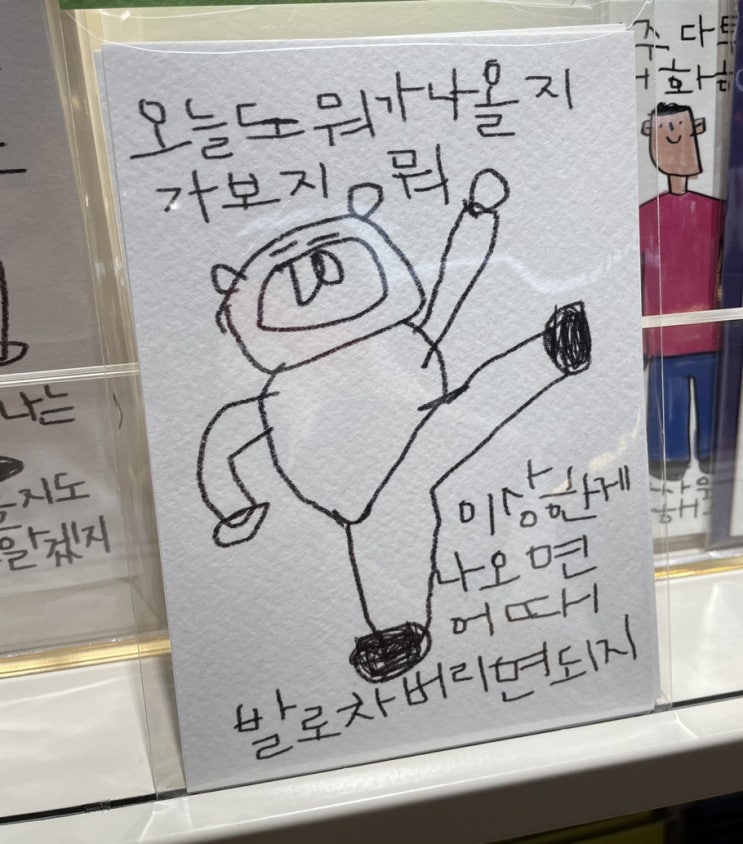 오늘도 뭐가 나올 지
가보지 뭐
이상한게
나오면
어때서
발로 차 버리면 되지
나는
지도
알겠지
주 다투
화해